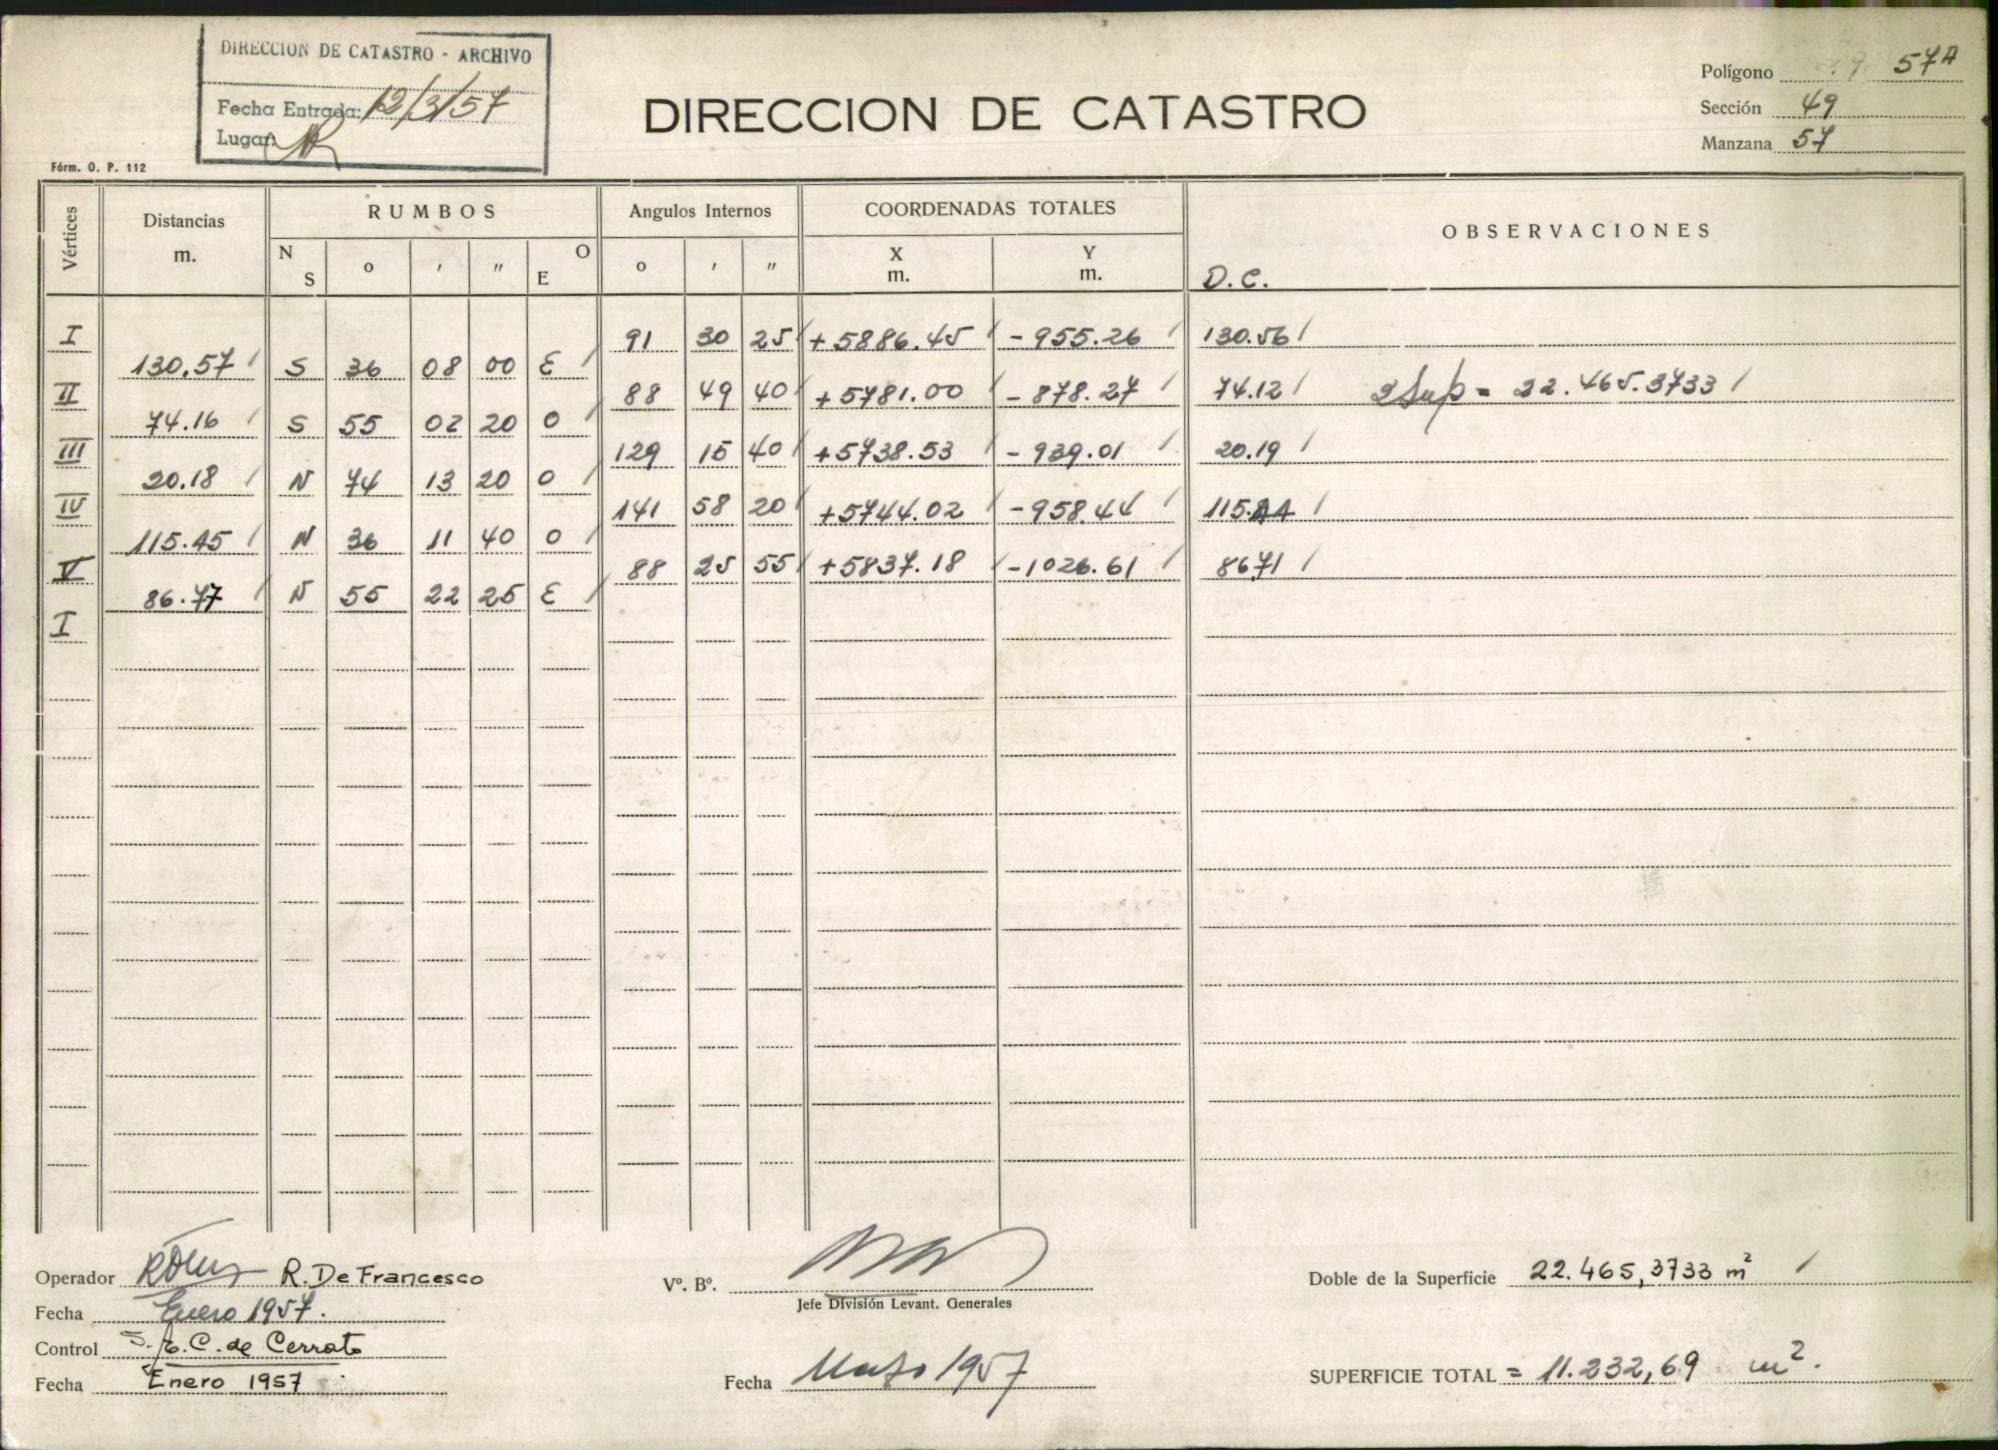 DIRECCION DE CATASTRO - ARCHIVO
Fecha Entrada: 12/3/57
Lugar:
DIRECCION DE CATASTRO
Polígono 57A
Sección 49
Manzana 57
Fórm. O. P. 112
Vértices Distancias m. RUMBOS Angulos Internos COORDENADAS TOTALES OBSERVACIONES
N S o ' " O E o ' " X m. Y m. D.C.
I 91 30 25 +5886.45 -955.26 130.56
130.57 S 36 08 00 E
II 88 49 40 +5781.00 -878.27 74.12 2Sup = 22.465.3733
74.16 S 55 02 20 O
III 129 15 40 +5738.53 -939.01 20.19
20.18 N 74 13 20 O
IV 141 58 20 +5744.02 -958.44 115.44
115.45 N 36 11 40 O
V 88 25 55 +5837.18 -1026.61 86.71
86.77 N 55 22 25 E
I
Operador R. De Francesco
Fecha Enero 1957.
Control E. C. de Cerrato
Fecha Enero 1957
Vº. Bº.
Jefe División Levant. Generales
Fecha Marzo 1957
Doble de la Superficie 22.465,3733 m²
SUPERFICIE TOTAL = 11.232,69 m².